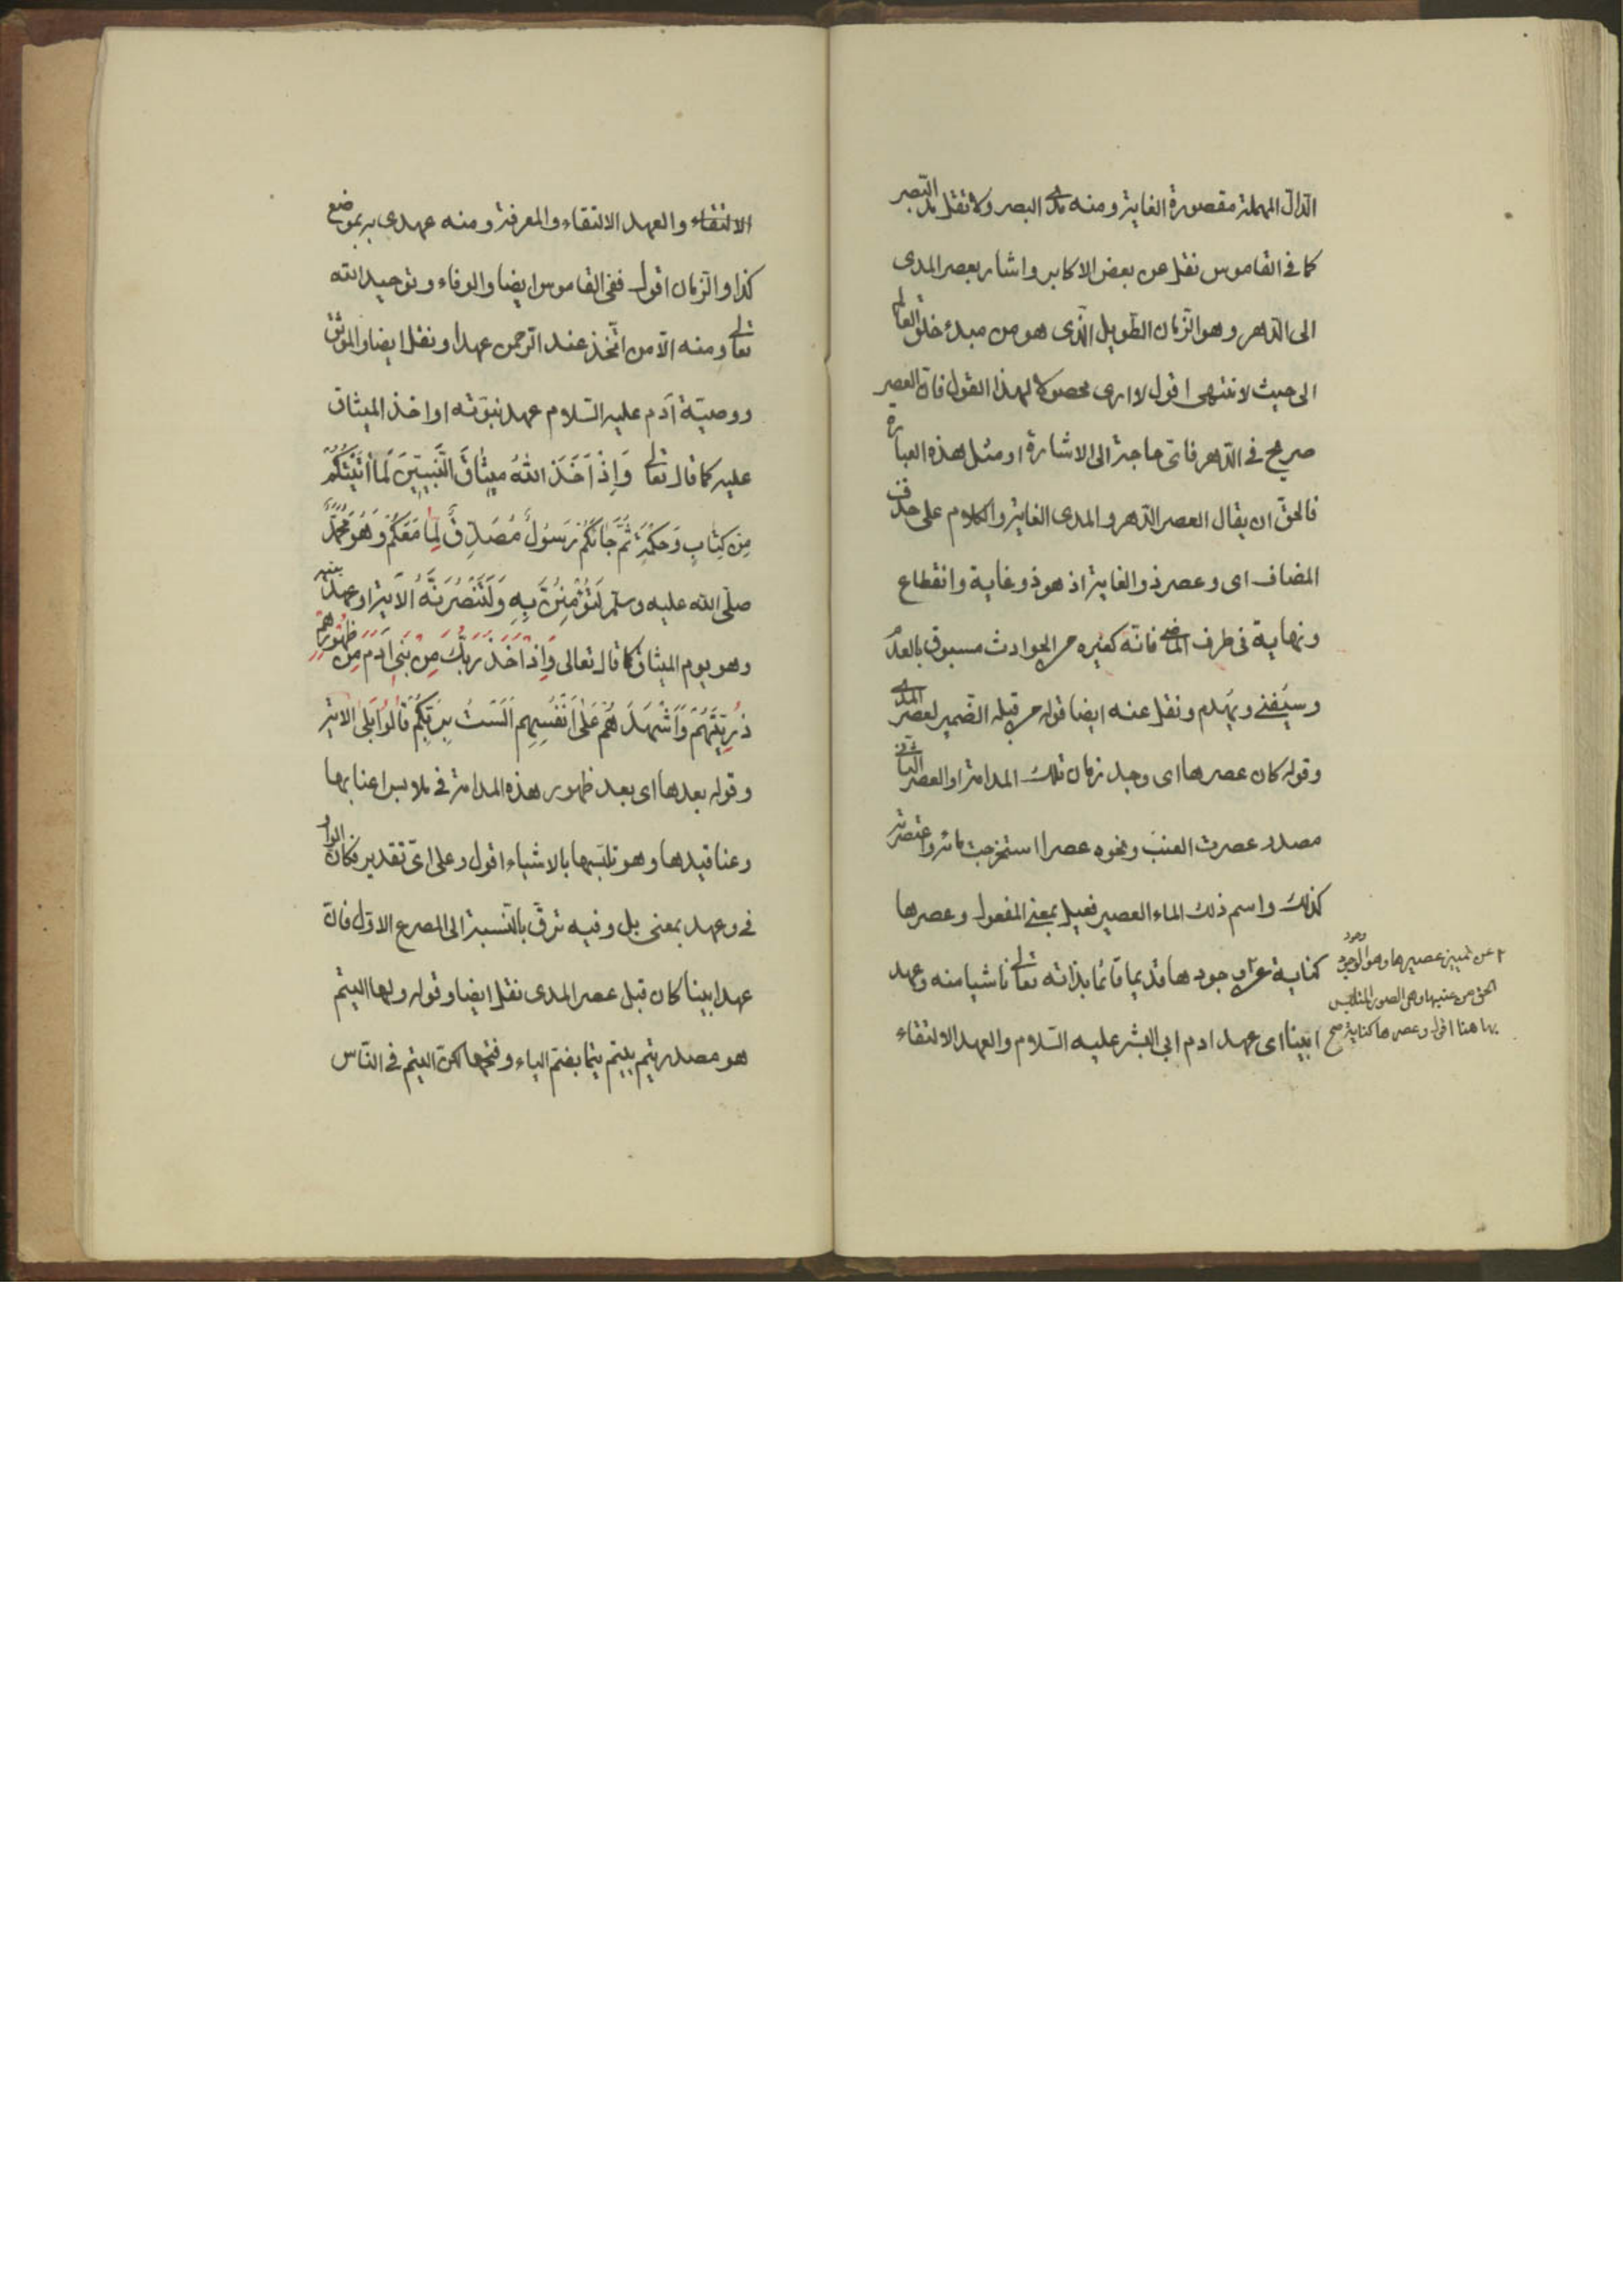 الدال المهملة مقصورة الغاية ومنه مدى البصر ولا تقل مد البصر
كما فى القاموس نقل عن بعض الاكابر واشار بعصر المدى
الى الدهر وهو الزمان الطويل الذى هو من مبدء خلق العالم
الى حيث لا ننتهى اقول لا ارى محصولا لهذا القول فان العصر
صريح فى الدهر فاى حاجة الى الاشارة او مثل هذه العبارة
فالحق ان يقال العصر الدهر والمدى الغاية والكلام على حذف
المضاف اى وعصر ذو الغاية اذ هو ذو غاية وانقطاع
ونهاية فى طرف الماضى فانه كغيره من الحوادث مسبوق بالعدم
وسيفنى وينهدم ونقل عنه ايضا قوله من قبله الضمير لعصر المدى
وقوله كان عصرها اى وجد زمان تلك المدامة او العصر الثانى
مصدر عصرت العنب ونحوه عصرا استخرجت مائه واعتصرته
كذلك واسم ذلك الماء العصير فعيل بمعنى المفعول وعصرها
كناية عن وجودها قديما قائما بذاته تعالى ناشيا منه وعهد
ابينا اى عهد ادم ابى البشر عليه السلام والعهد الالتقاء
عن تمييز عصيرها وهو الوجود
الحق من عنبها وهى الصور المتلابس
بها هنا اقول وعصرها كناية صح
الالتقاء والعهد الالتقاء والمعرفة ومنه عهدى به بموضع
كذا والزمان اقول ففى القاموس ايضا والوفاء وتوحيد الله
تعالى ومنه الا من اتخذ عند الرحمن عهدا ونقل ايضا والموثق
ووصية آدم عليه السلام عهد نبوته او اخذ الميثاق
عليه كما قال تعالى وَاِذْ اَخَذَ اللهُ مِيثٰاقَ النَّبِيِّينَ لَمٰا اٰتَيْتُكُمْ
مِنْ كِتٰابٍ وَحِكْمَةٍ ثُمَّ جٰائَكُمْ رَسُولٌ مُصَدِّقٌ لِمٰا مَعَكُمْ وَهُوَ مُحَمَّدٌ
صلى الله عليه وسلم لَتُؤْمِنُنَّ بِهِ وَلَتَنْصُرُنَّهُ الآية او عهد بنيه
وهو يوم الميثاق كما قال تعالى وَاِذْ اَخَذَ رَبُّكَ مِنْ بَنِى آدَمَ مِنْ ظُهُورِهِمْ
ذُرِّيَّتَهُمْ وَاَشْهَدَهُمْ عَلٰى اَنْفُسِهِمْ اَلَسْتُ بِرَبِّكُمْ قٰالُوا بَلٰى الاية
وقوله بعدها اى بعد ظهور هذه المدامة فى ملابس اعنابها
وعناقيدها وهو تلبسها بالاشياء اقول وعلى اى تقدير فكان الواو
فى وعهد بمعنى بل وفيه ترقّ بالنسبة الى المصرع الاول فان
عهد ابينا كان قبل عصر المدى نقل ايضا وقوله ولها اليتم
هو مصدر يتم ييتم يتما بضم الياء وفتحها لكن اليتم فى الناس